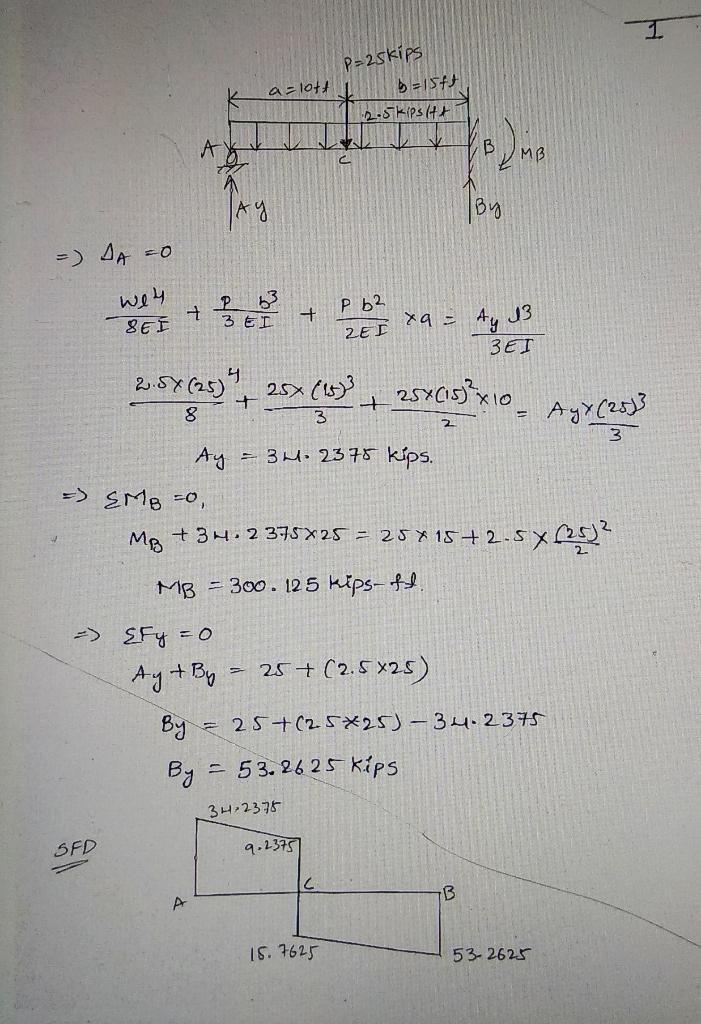 1
P=25kips
a=10ft b=15ft
2.5kips/ft
A C B MB
Ay By
=) ΔA =0
wl4/8EI + P b3/3 EI + P b2/2EI x a = Ay l3/3EI
2.5x(25)4/8 + 25x(15)3/3 + 25x(15)2x10/2 = Ayx(25)3/3
Ay = 34.2375 kips.
=) ΣMB =0,
MB + 34.2375x25 = 25x15+2.5x(25)2/2
MB = 300.125 kips-ft.
=) ΣFy = 0
Ay + By = 25 + (2.5x25)
By = 25+(25*25)-34.2375
By = 53.2625 kips
34.2375
SFD 9.2375
A C B
15.7625 53.2625